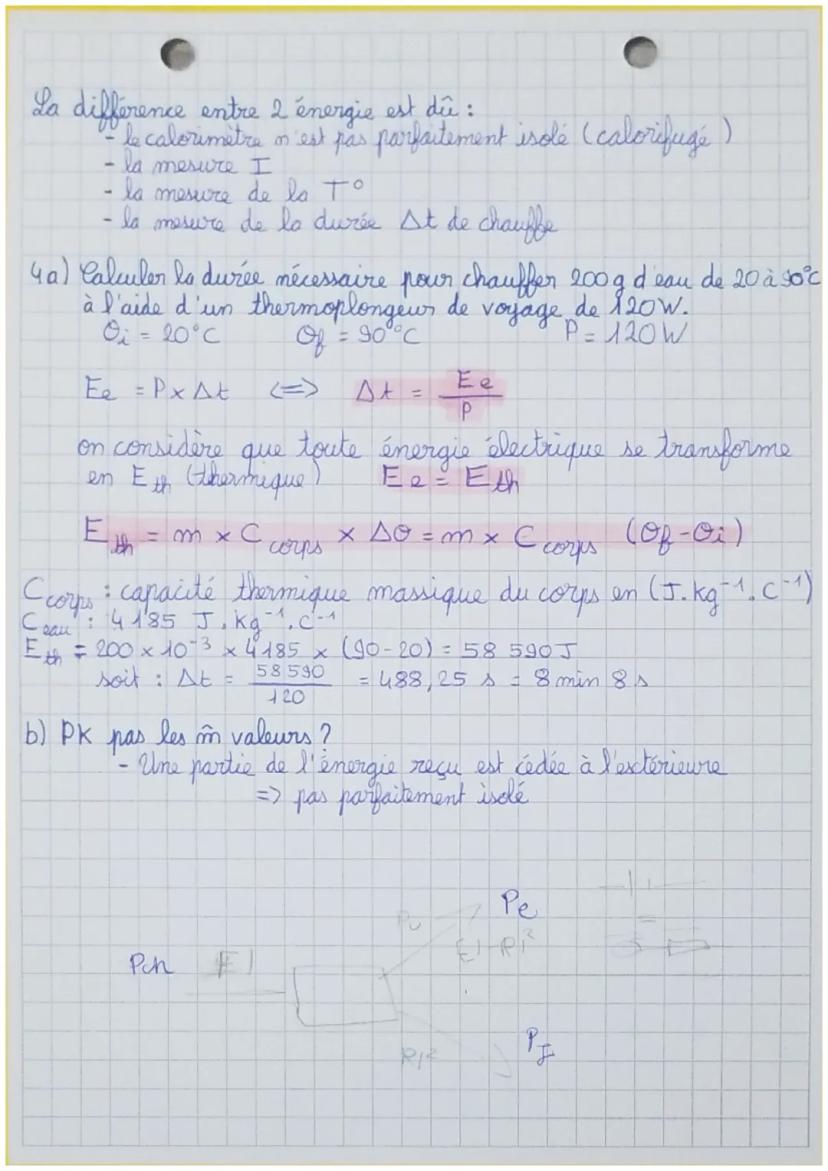 La différence entre 2 énergie est dû :
- le calorimètre n'est pas parfaitement isolé (calorifugé)
- la mesure I
- la mesure de la T°
- la mesure de la durée Δt de chauffe
4a) Calculer la durée nécessaire pour chauffer 200g d'eau de 20 à 90°C
à l'aide d'un thermoplongeur de voyage de 120W.
θi = 20°C θf = 90°C P = 120W
Ee = P × Δt <=> Δt = Ee / P
on considère que toute énergie électrique se transforme
en Eth (thermique) Ee = Eth
Eth = m × C corps × Δθ = m × C corps (θf - θi)
C corps : capacité thermique massique du corps en (J.kg⁻¹.C⁻¹)
C eau : 4185 J.kg⁻¹.C⁻¹
Eth = 200 × 10⁻³ × 4185 × (90-20) = 58 590J
soit : Δt = 58 590 / 120 = 488,25 s = 8 min 8 s
b) PK pas les m̂ valeurs ?
- Une partie de l'énergie reçu est cédée à l'extérieure
=> pas parfaitement isolé
Pe
EI-RI²
Pch EI
PJ
RI²